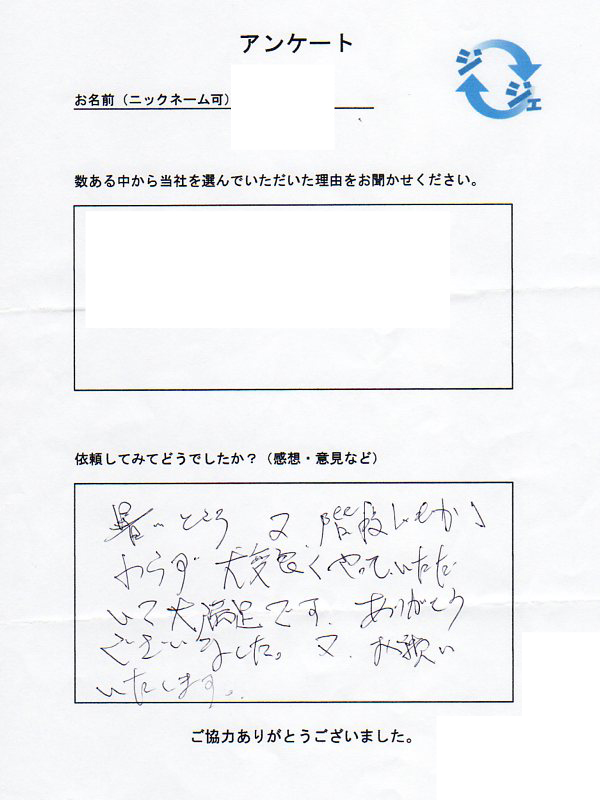 アンケート
ジジェ
お名前（ニックネーム可）
数ある中から当社を選んでいただいた理由をお聞かせください。
依頼してみてどうでしたか？（感想・意見など）
暑いところ 又、階段にもかゝ
わらず 大変良くやっていただ
いて大満足です。ありがとう
ございました。又、お願い
いたします。
ご協力ありがとうございました。